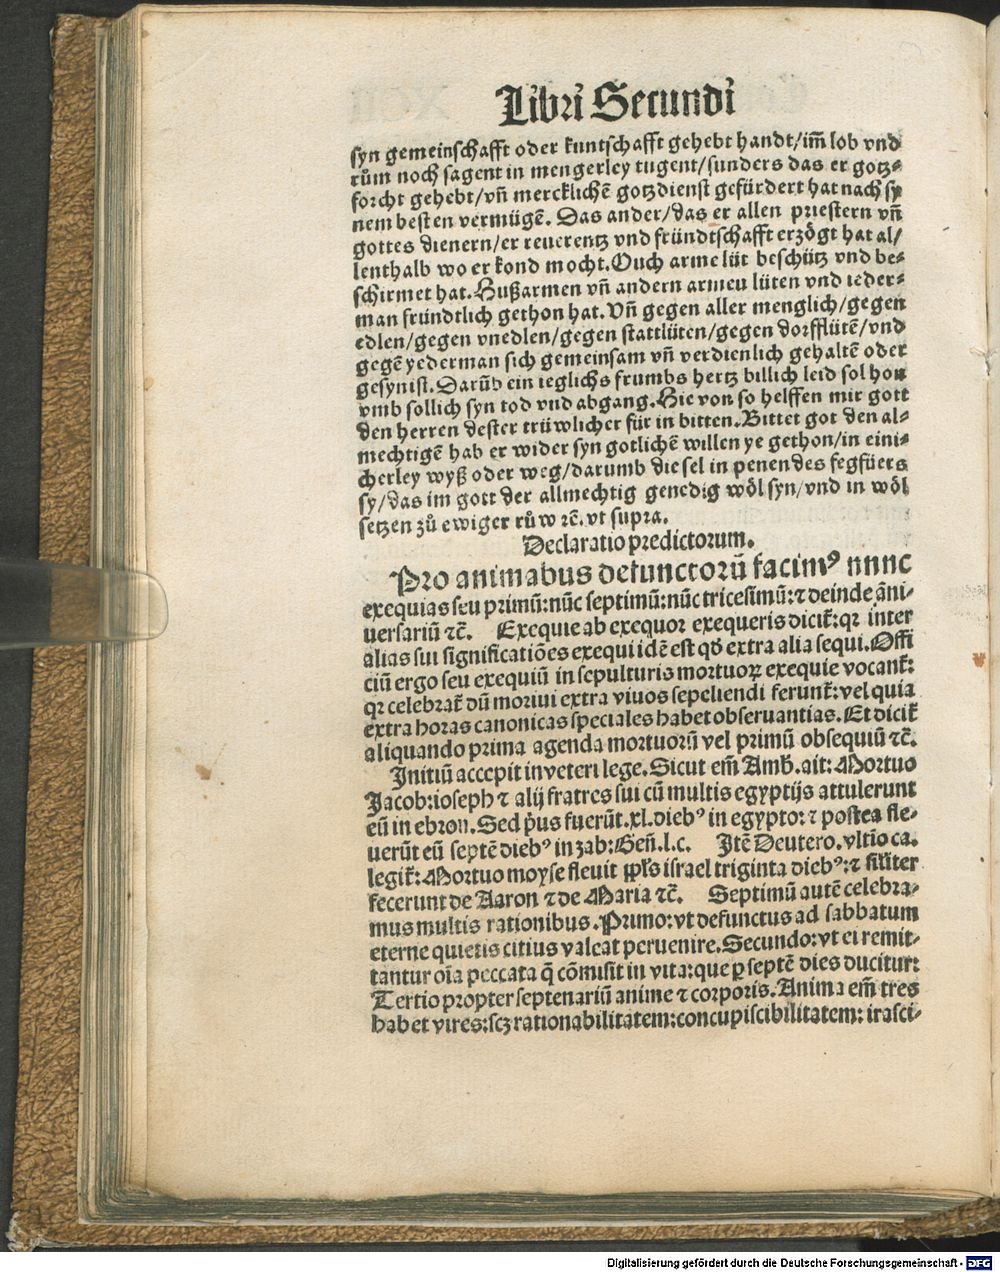 Libri Secundi
syn gemeinschafft oder kuntschafft gehebt handt/im̄ lob vnd
rům noch sagent in mengerley tugent/sunders das er gotz-
forcht gehebt/vn̄ mercklichē gotzdienst gefürdert hat nach sy
nem besten vermügē. Das ander/das er allen priestern vn̄
gottes dienern/er reuerentz vnd fründtschafft erzögt hat al/
lenthalb wo er kond mocht. Ouch arme lüt beschütz vnd be-
schirmet hat. Hußarmen vn̄ andern armeu lüten vnd ieder-
man fründtlich gethon hat. Vn̄ gegen aller menglich/gegen
edlen/gegen vnedlen/gegen stattlüten/gegen dorfflütē/vnd
gegē yederman sich gemeinsam vn̄ verdienlich gehaltē oder
gesyn ist. Darūb ein ieglichs frumbs hertz billich leid sol hon
vmb sollich syn tod vnd abgang. Hie von so helffen mir gott
den herren dester trüwlicher für in bitten. Bittet got den al-
mechtigē hab er wider syn gotlichē willen ye gethon/in eini-
cherley wyß oder weg/darumb die sel in penen des fegfüers
sy/das im gott der allmechtig genedig wöl syn/vnd in wöl
setzen zů ewiger růw ꝛc̄. vt supra.
Declaratio predictorum.
Pro animabus defunctorū facimꝰ nnnc
exequias seu primū: nūc septimū: nūc tricesimū: ⁊ deinde āni-
uersariū ⁊c̄. Exequie ab exequor exequeris dicit̄: qꝛ inter
alias sui significatiōes exequi idē est qd̄ extra alia sequi. Offi
ciū ergo seu exequiū in sepulturis mortuoꝝ exequie vocant̄:
qꝛ celebrat̄ dū mortui extra viuos sepeliendi ferunt̄: vel quia
extra horas canonicas speciales habet obseruantias. Et dicit̄
aliquando prima agenda mortuorū vel primū obsequiū ⁊c̄.
Initiū accepit in veteri lege. Sicut em̄ Amb̄. ait: Mortuo
Jacob: ioseph ⁊ alij fratres sui cū multis egyptijs attulerunt
eū in ebron. Sed p̄us fuerūt .xl. diebꝰ in egypto: ⁊ postea fle-
uerūt eū septē diebꝰ in zab: Gen̄. l. c. Itē Deutero. vltīo ca.
legit̄: Mortuo moyse fleuit ppl̄s israel triginta diebꝰ: ⁊ silīter
fecerunt de Aaron ⁊ de Maria ⁊c̄. Septimū autē celebra-
mus multis rationibus. Primo: vt defunctus ad sabbatum
eterne quietis citius valeat peruenire. Secundo: vt ei remit-
tantur oīa peccata q̄ cōmisit in vita: que ꝑ septē dies ducitur:
Tertio propter septenariū anime ⁊ corporis. Anima em̄ tres
habet vires: scꝫ rationabilitatem: concupiscibilitatem: irasci-
Digitalisierung gefördert durch die Deutsche Forschungsgemeinschaft - DFG